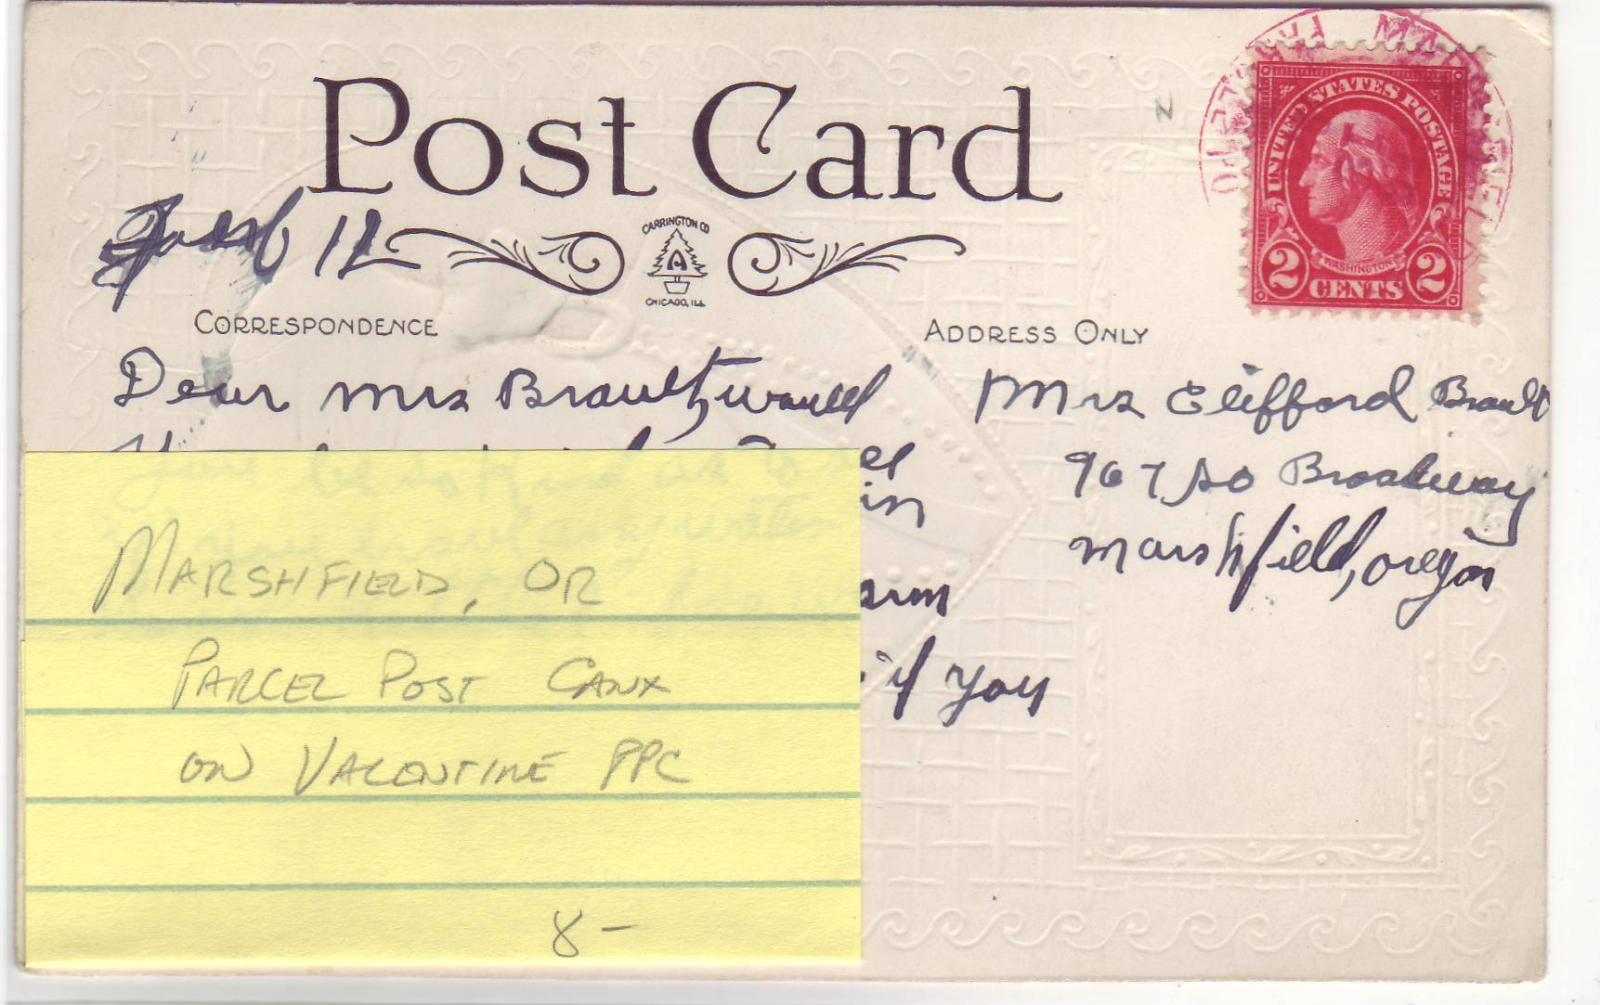 Post Card
UNITED STATES POSTAGE
WASHINGTON
2 CENTS 2
12
CARRINGTON CO
A
CHICAGO, ILL
CORRESPONDENCE
ADDRESS ONLY
Dear Mrs Brault, would
in
if you
Mrs Clifford Brault
967 So Broadway
Marshfield, Oregon
MARSHFIELD, OR
PARCEL POST CANX
ON VALENTINE PPC
8-